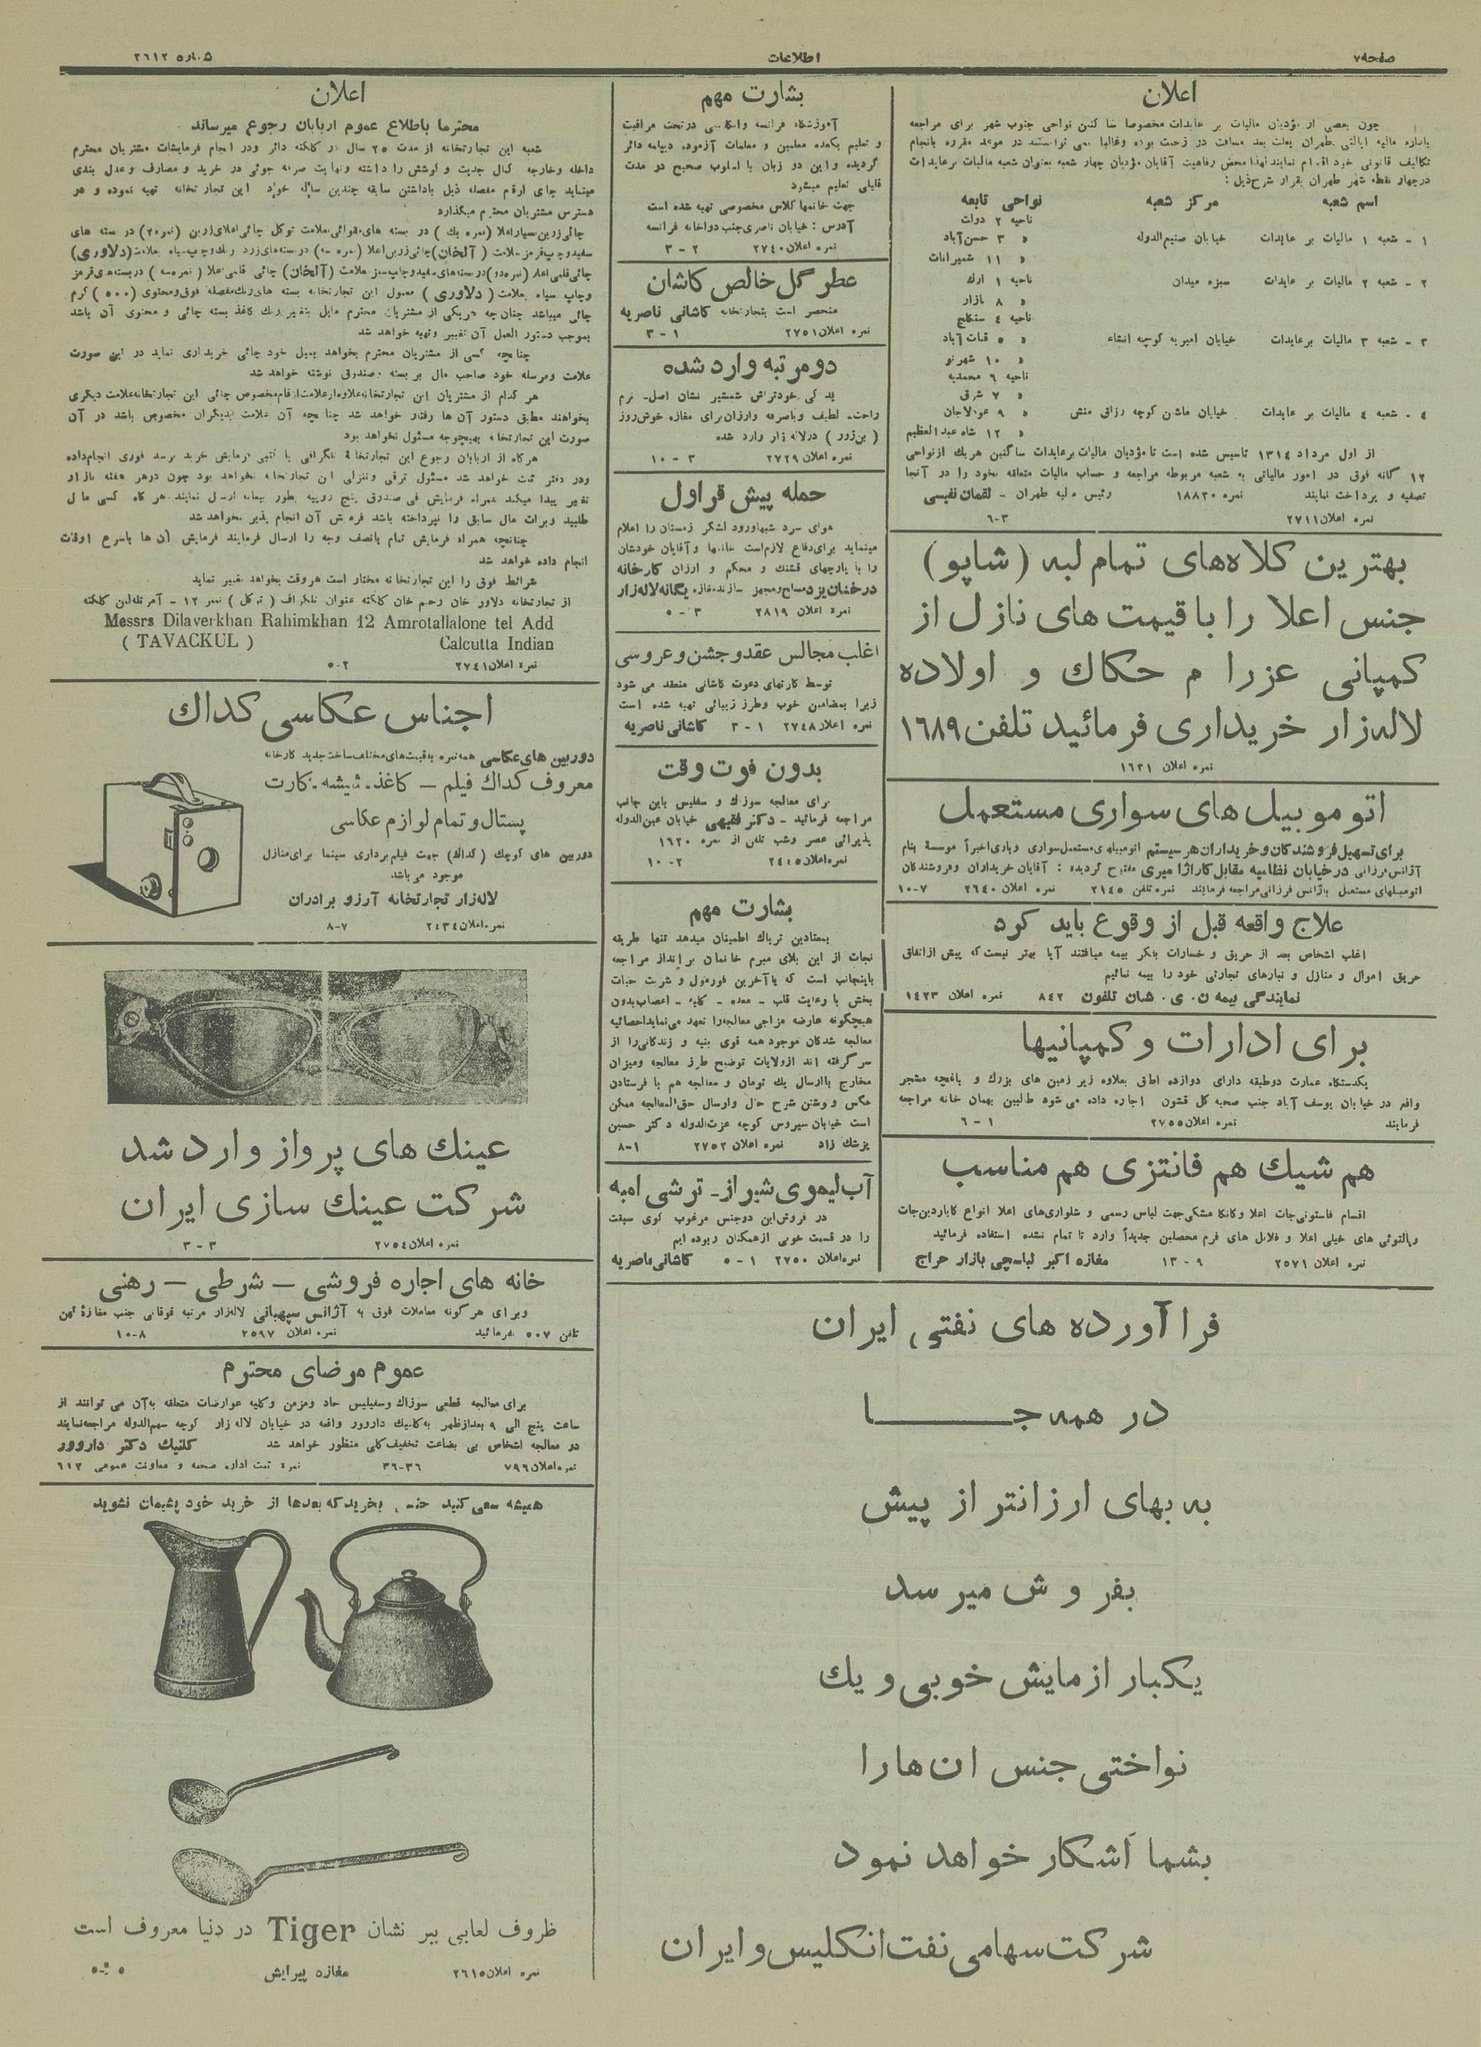 صفحه ۷
اطلاعات
شماره ۲۶۱۲
اعلان
چون بعضی از مؤدیان مالیات بر عایدات مخصوصا ساکنین نواحی جنوب شهر برای مراجعه
باداره مالیه ایالتی طهران بعلت بعد مسافت در زحمت بوده و غالبا نمی توانستند در موعد مقرره بانجام
تکالیف قانونی خود اقدام نمایند لهذا محض رفاهیت آقایان مؤدیان چهار شعبه بعنوان شعبه مالیات بر عایدات
درچهار نقطه شهر طهران بقرار شرح ذیل :
اسم شعبه مرکز شعبه نواحی تابعه
ناحیه ۲ دولت
۱ - شعبه ۱ مالیات بر عایدات خیابان صنیع‌الدوله » ۳ حسن آباد
» ۱۱ شمیرانات
۲ - شعبه ۲ مالیات بر عایدات سبزه میدان ناحیه ۱ ارك
» ۸ بازار
ناحیه ۴ سنگلج
۳ - شعبه ۳ مالیات برعایدات خیابان امیریه کوچه انشاء » ۵ قنات آباد
» ۱۰ شهرنو
ناحیه ۶ محمدیه
» ۷ شرق
۴ - شعبه ۴ مالیات بر عایدات خیابان ماشین کوچه رزاق منش » ۹ عودلاجان
» ۱۲ شاه عبدالعظیم
از اول مرداد ۱۳۱۴ تاسیس شده است تا مؤدیان مالیات برعایدات ساکنین هریك ازنواحی
۱۲ گانه فوق در امور مالیاتی به شعبه مربوطه مراجعه و حساب مالیات متعلقه بخود را در آنجا
تصفیه و پرداخت نمایند نمره ۱۸۸۲۰ رئیس مالیه طهران - لقمان نفیسی
نمره اعلان ۲۷۱۱ ۶-۳
بهترین کلاه‌های تمام لبه (شاپو)
جنس اعلا را با قیمت های نازل از
کمپانی عزرا م حکاك و اولاده
لاله‌زار خریداری فرمائید تلفن ۱۶۸۹
نمره اعلان ۱۶۲۱
اتوموبیل های سواری مستعمل
برای تسهیل فروشندگان و خریداران هر سیستم اتومبیلهای مستعمل سواری وباری اخیراً موسسهٔ بنام
آژانس فرزانی درخیابان نظامیه مقابل گاراژ امیری مفتوح گردیده : آقایان خریداران وفروشندگان
اتومبیلهای مستعمل بآژانس فرزانی مراجعه فرمایند نمره تلفن ۲۱۴۵ نمره اعلان ۲۶۴۰ ۱۰-۷
علاج واقعه قبل از وقوع باید کرد
اغلب اشخاص بعد از حریق و خسارات بفکر بیمه میافتند آیا بهتر نیست که پیش ازاتفاق
حریق اموال و منازل و انبارهای تجارتی خود را بیمه نمائیم
نمایندگی بیمه ن. ی. شان تلفون ۸۴۲ نمره اعلان ۱۴۲۳
برای ادارات و کمپانیها
یکدستگاه عمارت دوطبقه دارای دوازده اطاق بعلاوه زیر زمین های بزرك و باغچه مشجر
واقع در خیابان یوسف آباد جنب صحیه کل قشون اجاره داده می شود طالبین بهمان خانه مراجعه
فرمایند نمره اعلان ۲۷۵۵ ۱ - ۶
هم شیك هم فانتزی هم مناسب
اقسام فاستونی‌جات اعلا وکانگا مشکی جهت لباس رسمی و شلواری‌های اعلا انواع گاباردین‌جات
وپالتوئی های خیلی اعلا و فلانل های فرم محصلین جدیداً وارد تا تمام نشده استفاده فرمائید
نمره اعلان ۲۵۷۱ ۹ - ۱۳ مغازه اکبر لباسچی بازار حراج
بشارت مهم
آموزشگاه فرانسه وانگلیسی درتحت مراقبت
و تعلیم یکعده معلمین و معلمات آزموده دیپلمه دائر
گردیده و این دو زبان با اسلوب صحیح در مدت
قلیلی تعلیم میشود
جهت خانمها کلاس مخصوصی تهیه شده است
آدرس : خیابان ناصری جنب دواخانه فرانسه
نمره اعلان ۲۷۴۰ ۲ - ۳
عطر گل خالص کاشان
منحصر است بتجارتخانه کاشانی ناصریه
نمره اعلان ۲۷۵۱ ۱ - ۳
دو مرتبه وارد شده
یدکی خودتراش شمشیر نشان اصل- نرم
راحت- لطیف وباصرفه وارزان برای مغازه خوش‌روز
( بن‌ژور ) درلاله‌زار وارد شده
نمره اعلان ۲۷۲۹ ۳ - ۱۰
حمله پیش قراول
هوای سرد شبها ورود لشکر زمستان را اعلام
مینماید برای دفاع لازم است خانمها و آقایان خودشان
را با پارچهای قشنك و محکم و ارزان کارخانه
درخشان یزد مسلح و مجهز سازند مغازه یگانه لاله‌زار
نمره اعلان ۲۸۱۹ ۳ - ۵
اغلب مجالس عقد و جشن و عروسی
توسط کارتهای دعوت کاشانی منعقد می شود
زیرا بمضامین خوب وطرز زیبائی تهیه شده است
نمره اعلان ۲۷۴۸ ۱ - ۳ کاشانی ناصریه
بدون فوت وقت
برای معالجه سوزك و سفلیس باین جانب
مراجعه فرمائید - دکتر فقیهی خیابان عین‌الدوله
پذیرائی عصر وشب تلفن از نمره ۱۶۲۰
نمره اعلان ۲۴۱۵ ۲- ۱۰
بشارت مهم
بمعتادین تریاك اطمینان میدهد تنها طریقه
نجات از این بلای مبرم خانمان برانداز مراجعه
باینجانب است که باآخرین فورمول و شربت حیات
بخش با رعایت قلب - معده - کلیه - اعصاب بدون
هیچگونه عارضه مزاجی معالجه را تعهد می‌نماید احصائیه
معالجه شدگان موجود همه قوی بنیه و زندگانی را از
سر گرفته اند ازولایات توضیح طرز معالجه ومیزان
مخارج باارسال یك تومان و معالجه هم با فرستادن
عکس و نوشتن شرح حال وارسال حق‌المعالجه ممکن
است خیابان سیروس کوچه عزت‌الدوله دکتر حسین
پزشك زاد نمره اعلان ۲۷۵۲ ۸-۱
آب لیموی شیراز- ترشی انبه
در فروش این دوجنس مرغوب گوی سبقت
را در قسمت خوبی ازهمکنان ربوده ایم
نمره اعلان ۲۷۵۰ ۱ - ۵ کاشانی ناصریه
فرا آورده های نفتی ایران
در همه جــا
به بهای ارزانتر از پیش
بفروش میرسد
یکبار ازمایش خوبی و یك
نواختی جنس ان ها را
بشما آشکار خواهد نمود
شرکت سهامی نفت انگلیس و ایران
اعلان
محترما باطلاع عموم اربابان رجوع میرساند
شعبه این تجارتخانه از مدت ۲۵ سال در کلکته دائر ودر انجام فرمایشات مشتریان محترم
داخله وخارجه کمال جدیت و کوشش را داشته ونهایت صرفه جوئی در خرید و مصارف وعدل بندی
مینماید چای ارقام مفصله ذیل باداشتن سابقه چندین ساله خود این تجارتخانه تهیه نموده و در
دسترس مشتریان محترم میگذارد
چائی زرین بسیار اعلا (نمره یك) در بسته های مقوائی علامت توکل چائی اعلای زرین (نمره۲) در بسته های
سفید وچاپ قرمز علامت (آلخان) چائی زرین اعلا (نمره سه) دربسته‌های زرد رنك وچاپ سیاه بعلامت (دلاوری)
چائی قلمی اعلا (نمره دو) در بسته‌های سفید وچاپ سبز علامت (آلخان) چائی قلمی اعلا (نمره سه) دربسته‌های قرمز
وچاپ سیاه بعلامت (دلاوری) معمول این تجارتخانه بسته های رنك مفصله فوق ومحتوی (۵۰۰) گرم
چائی میباشد چنان چه هریکی از مشتریان محترم مایل بتغییر رنك کاغذ بسته چائی و محتوی آن باشد
بموجب دستور العمل آن تغییر وتهیه خواهد شد
چنانچه کسی از مشتریان محترم بخواهد بمیل خود چائی خریداری نماید در این صورت
علامت ومرسله خود صاحب مال بر بسته وصندوق نوشته خواهد شد
هر کدام از مشتریان این تجارتخانه علاوه ازعلامت ارقام مخصوص چائی این تجارتخانه علامت دیگری
بخواهند مطابق دستور آن ها رفتار خواهد شد چنانچه آن علامت بدیگران مخصوص باشد در آن
صورت این تجارتخانه بهیچوجه مسئول نخواهد بود
هرگاه از اربابان رجوع این تجارتخانه تلگرافی یا کتبی فرمایش خرید برسد فوری انجام داده
ودر دفتر ثبت خواهد شد مسئول ترقی وتنزلی این تجارتخانه نخواهد بود چون درهر هفته بازار
تغییر پیدا میکند همراه فرمایش فی صندوق پنج روپیه بطور بیعانه ارسال نمایند هرگاه کسی مال
طلبید وبرات مال سابق را نپرداخته باشد فرمایش آن انجام پذیر نخواهد شد
چنانچه همراه فرمایش تمام یانصف وجه را ارسال فرمایند فرمایش آن ها باسرع اوقات
انجام داده خواهد شد
شرائط فوق را این تجارتخانه مختار است هروقت بخواهد تغییر نماید
از تجارتخانه دلاور خان رحیم خان کلکته عنوان تلگراف (توکل) نمره ۱۲ - آمرتله‌لین کلکته
Messrs Dilaverkhan Rahimkhan 12 Amrotallalone tel Add
( TAVACKUL ) Calcutta Indian
نمره اعلان ۲۷۴۱ ۵-۲
اجناس عکاسی کداك
دوربین های عکاسی همه نمره به قیمت‌های مختلف ساخت جدید کارخانه
معروف کداك فیلم - کاغذ- شیشه- کارت
پستال و تمام لوازم عکاسی
دوربین های کوچك (کداك) جهت فیلم برداری سینما برای منازل
موجود می باشد
لاله‌زار تجارتخانه آرزو برادران
نمره اعلان ۲۴۳۴ ۸-۷
عینك های پرواز وارد شد
شرکت عینك سازی ایران
نمره اعلان ۲۷۵۴ ۳ - ۳
خانه های اجاره فروشی - شرطی - رهنی
وبرای هرگونه معاملات فوق به آژانس سپهبانی لاله‌زار مرتبه فوقانی جنب مغازهٔ بهمن
تلفن ۵۰۷ بفرمائید نمره اعلان ۲۵۹۷ ۱۰-۸
عموم مرضای محترم
برای معالجه قطعی سوزاك وسفیلیس حاد ومزمن وکلیه عوارضات متعلقه به‌آن می توانند از
ساعت پنج الی ۹ بعدازظهر به‌کلنیك داروور واقعه در خیابان لاله زار کوچه سهم‌الدوله مراجعه‌نمایند
در معالجه اشخاص بی بضاعت تخفیف کلی منظور خواهد شد کلنیك دکتر داروور
نمره اعلان ۷۹۶ ۳۶-۳۶ نمره ثبت اداره صحیه و معاونت عمومی ۶۱۲
همیشه سعی کنید جنسی بخرید که بعدها از خرید خود پشیمان نشوید
ظروف لعابی ببر نشان Tiger در دنیا معروف است
نمره اعلان ۲۶۱۵ مغازه پیرایش